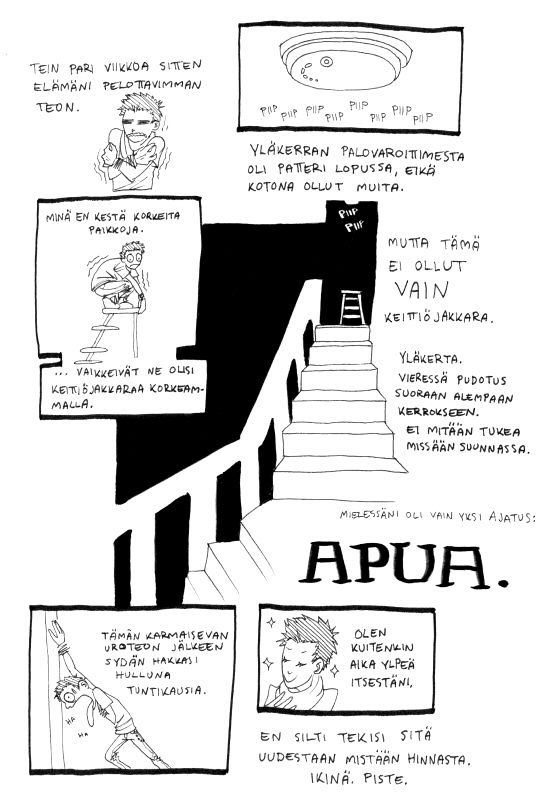 TEIN PARI VIIKKOA SITTEN
ELÄMÄNI PELOTTAVIMMAN
TEON.
PIIP PIIP PIIP PIIP PIIP PIIP PIIP PIIP
YLÄKERRAN PALOVAROITTIMESTA
OLI PATTERI LOPUSSA, EIKÄ
KOTONA OLLUT MUITA.
MINÄ EN KESTÄ KORKEITA
PAIKKOJA.
... VAIKKEIVÄT NE OLISI
KEITTIÖJAKKARAA KORKEAM-
MALLA.
PIIP
PIIP
MUTTA TÄMÄ
EI OLLUT
VAIN
KEITTIÖJAKKARA.
YLÄKERTA.
VIERESSÄ PUDOTUS
SUORAAN ALEMPAAN
KERROKSEEN.
EI MITÄÄN TUKEA
MISSÄÄN SUUNNASSA.
MIELESSÄNI OLI VAIN YKSI AJATUS:
APUA.
TÄMÄN KARMAISEVAN
UROTEON JÄLKEEN
SYDÄN HAKKASI
HULLUNA
TUNTIKAUSIA.
HA
HA
OLEN
KUITENKIN
AIKA YLPEÄ
ITSESTÄNI,
EN SILTI TEKISI SITÄ
UUDESTAAN MISTÄÄN HINNASTA.
IKINÄ. PISTE.